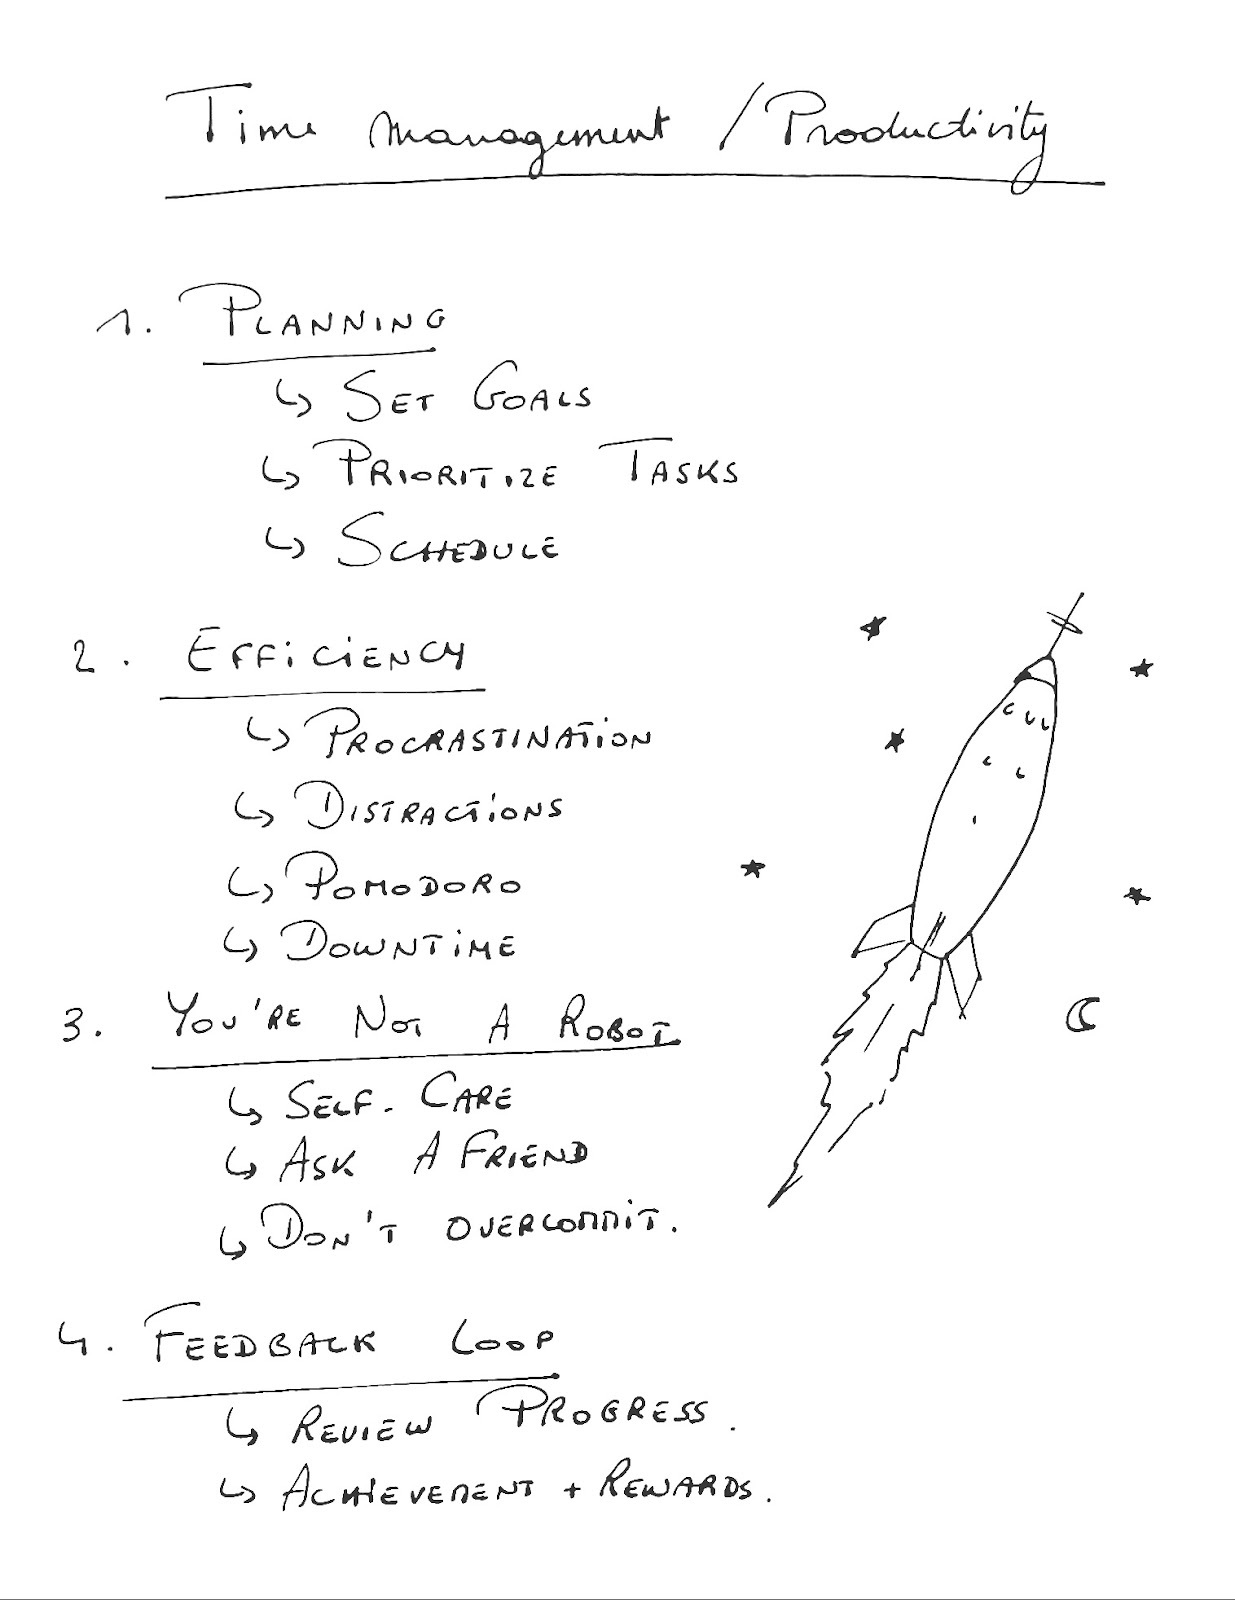 Time Management / Productivity
1. PLANNING
↳ SET GOALS
↳ PRIORITIZE TASKS
↳ SCHEDULE
2. EFFICIENCY
↳ PROCRASTINATION
↳ DISTRACTIONS
↳ POMODORO
↳ DOWNTIME
3. YOU'RE NOT A ROBOT
↳ SELF-CARE
↳ ASK A FRIEND
↳ DON'T OVERCOMMIT.
4. FEEDBACK LOOP
↳ REVIEW PROGRESS.
↳ ACHIEVEMENT + REWARDS.